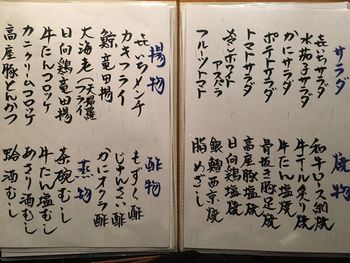 サラダ
きいちサラダ
水茄子サラダ
かにサラダ
ポテサラダ
トマトサラダ
メキシホワイトアスパラ
フルーツトマト
焼物
和牛ロース網焼
牛テール炙り焼
牛たん塩焼
骨抜き豚足焼
高座豚塩焼
日向鶏塩焼
銀鱈西京焼
脂めざし
揚物
きいちメンチ
カキフライ
鯨竜田揚
大海老(天ぷら フライ)
日向鶏竜田揚
牛たんコロッケ
カニクリームコロッケ
高座豚とんかつ
酢物
もずく酢
じゅんさい酢
かにオクラ酢
蒸物
茶碗むし
牛たん塩むし
あさり酒むし
蛤酒むし